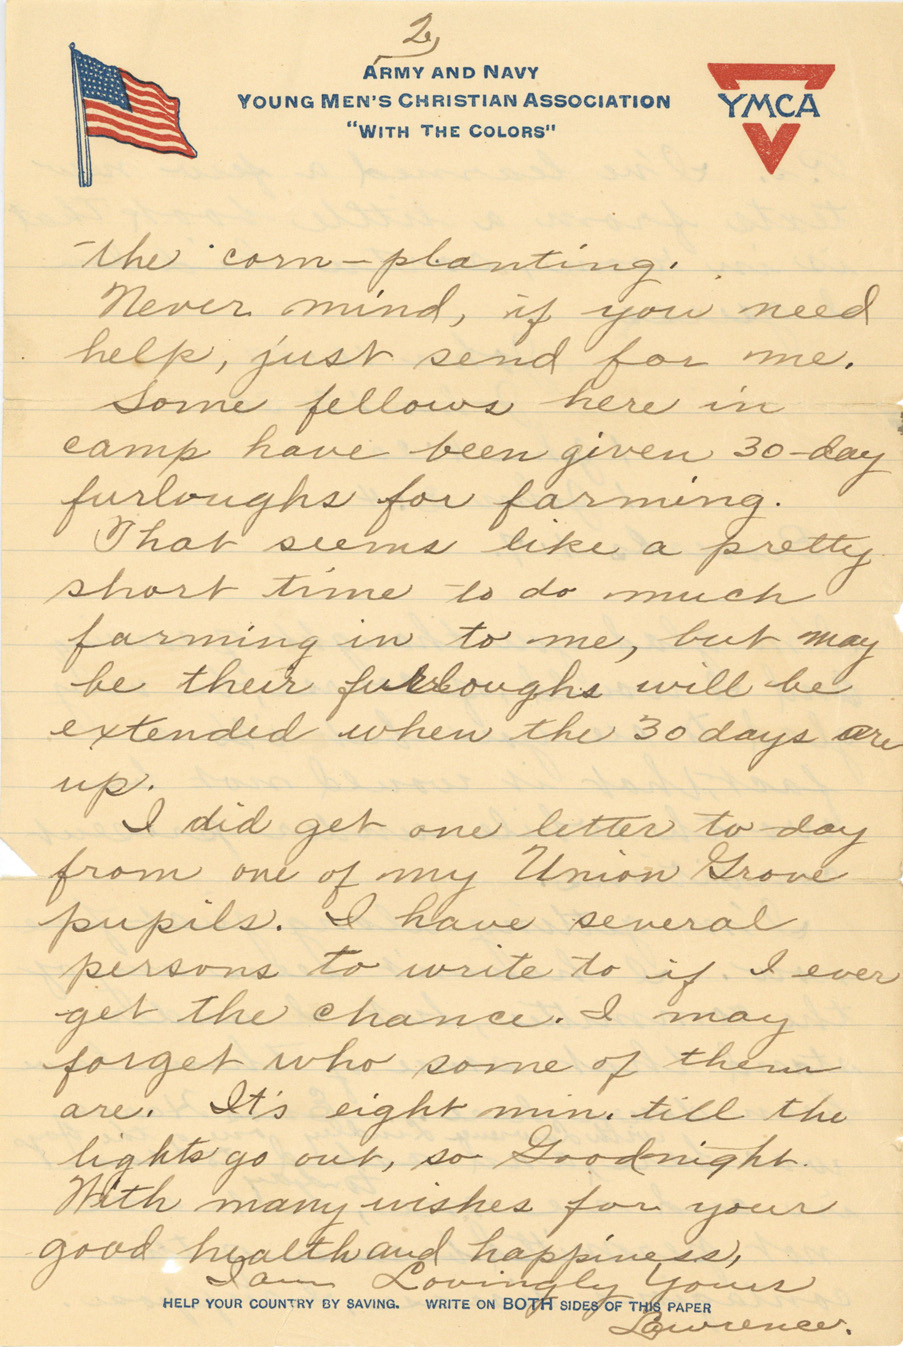 2,
ARMY AND NAVY
YOUNG MEN'S CHRISTIAN ASSOCIATION
"WITH THE COLORS"
YMCA
the corn-planting.
Never mind, if you need
help, just send for me.
Some fellows here in
camp have been given 30-day
furloughs for farming.
That seems like a pretty
short time to do much
farming in to me, but may
be their furloughs will be
extended when the 30 days are
up.
I did get one letter to-day
from one of my Union Grove
pupils. I have several
persons to write to if I ever
get the chance. I may
forget who some of them
are. It's eight min. till the
lights go out, so Goodnight.
With many wishes for your
good health and happiness,
I am Lovingly Yours
HELP YOUR COUNTRY BY SAVING. WRITE ON BOTH SIDES OF THIS PAPER
Lawrence.